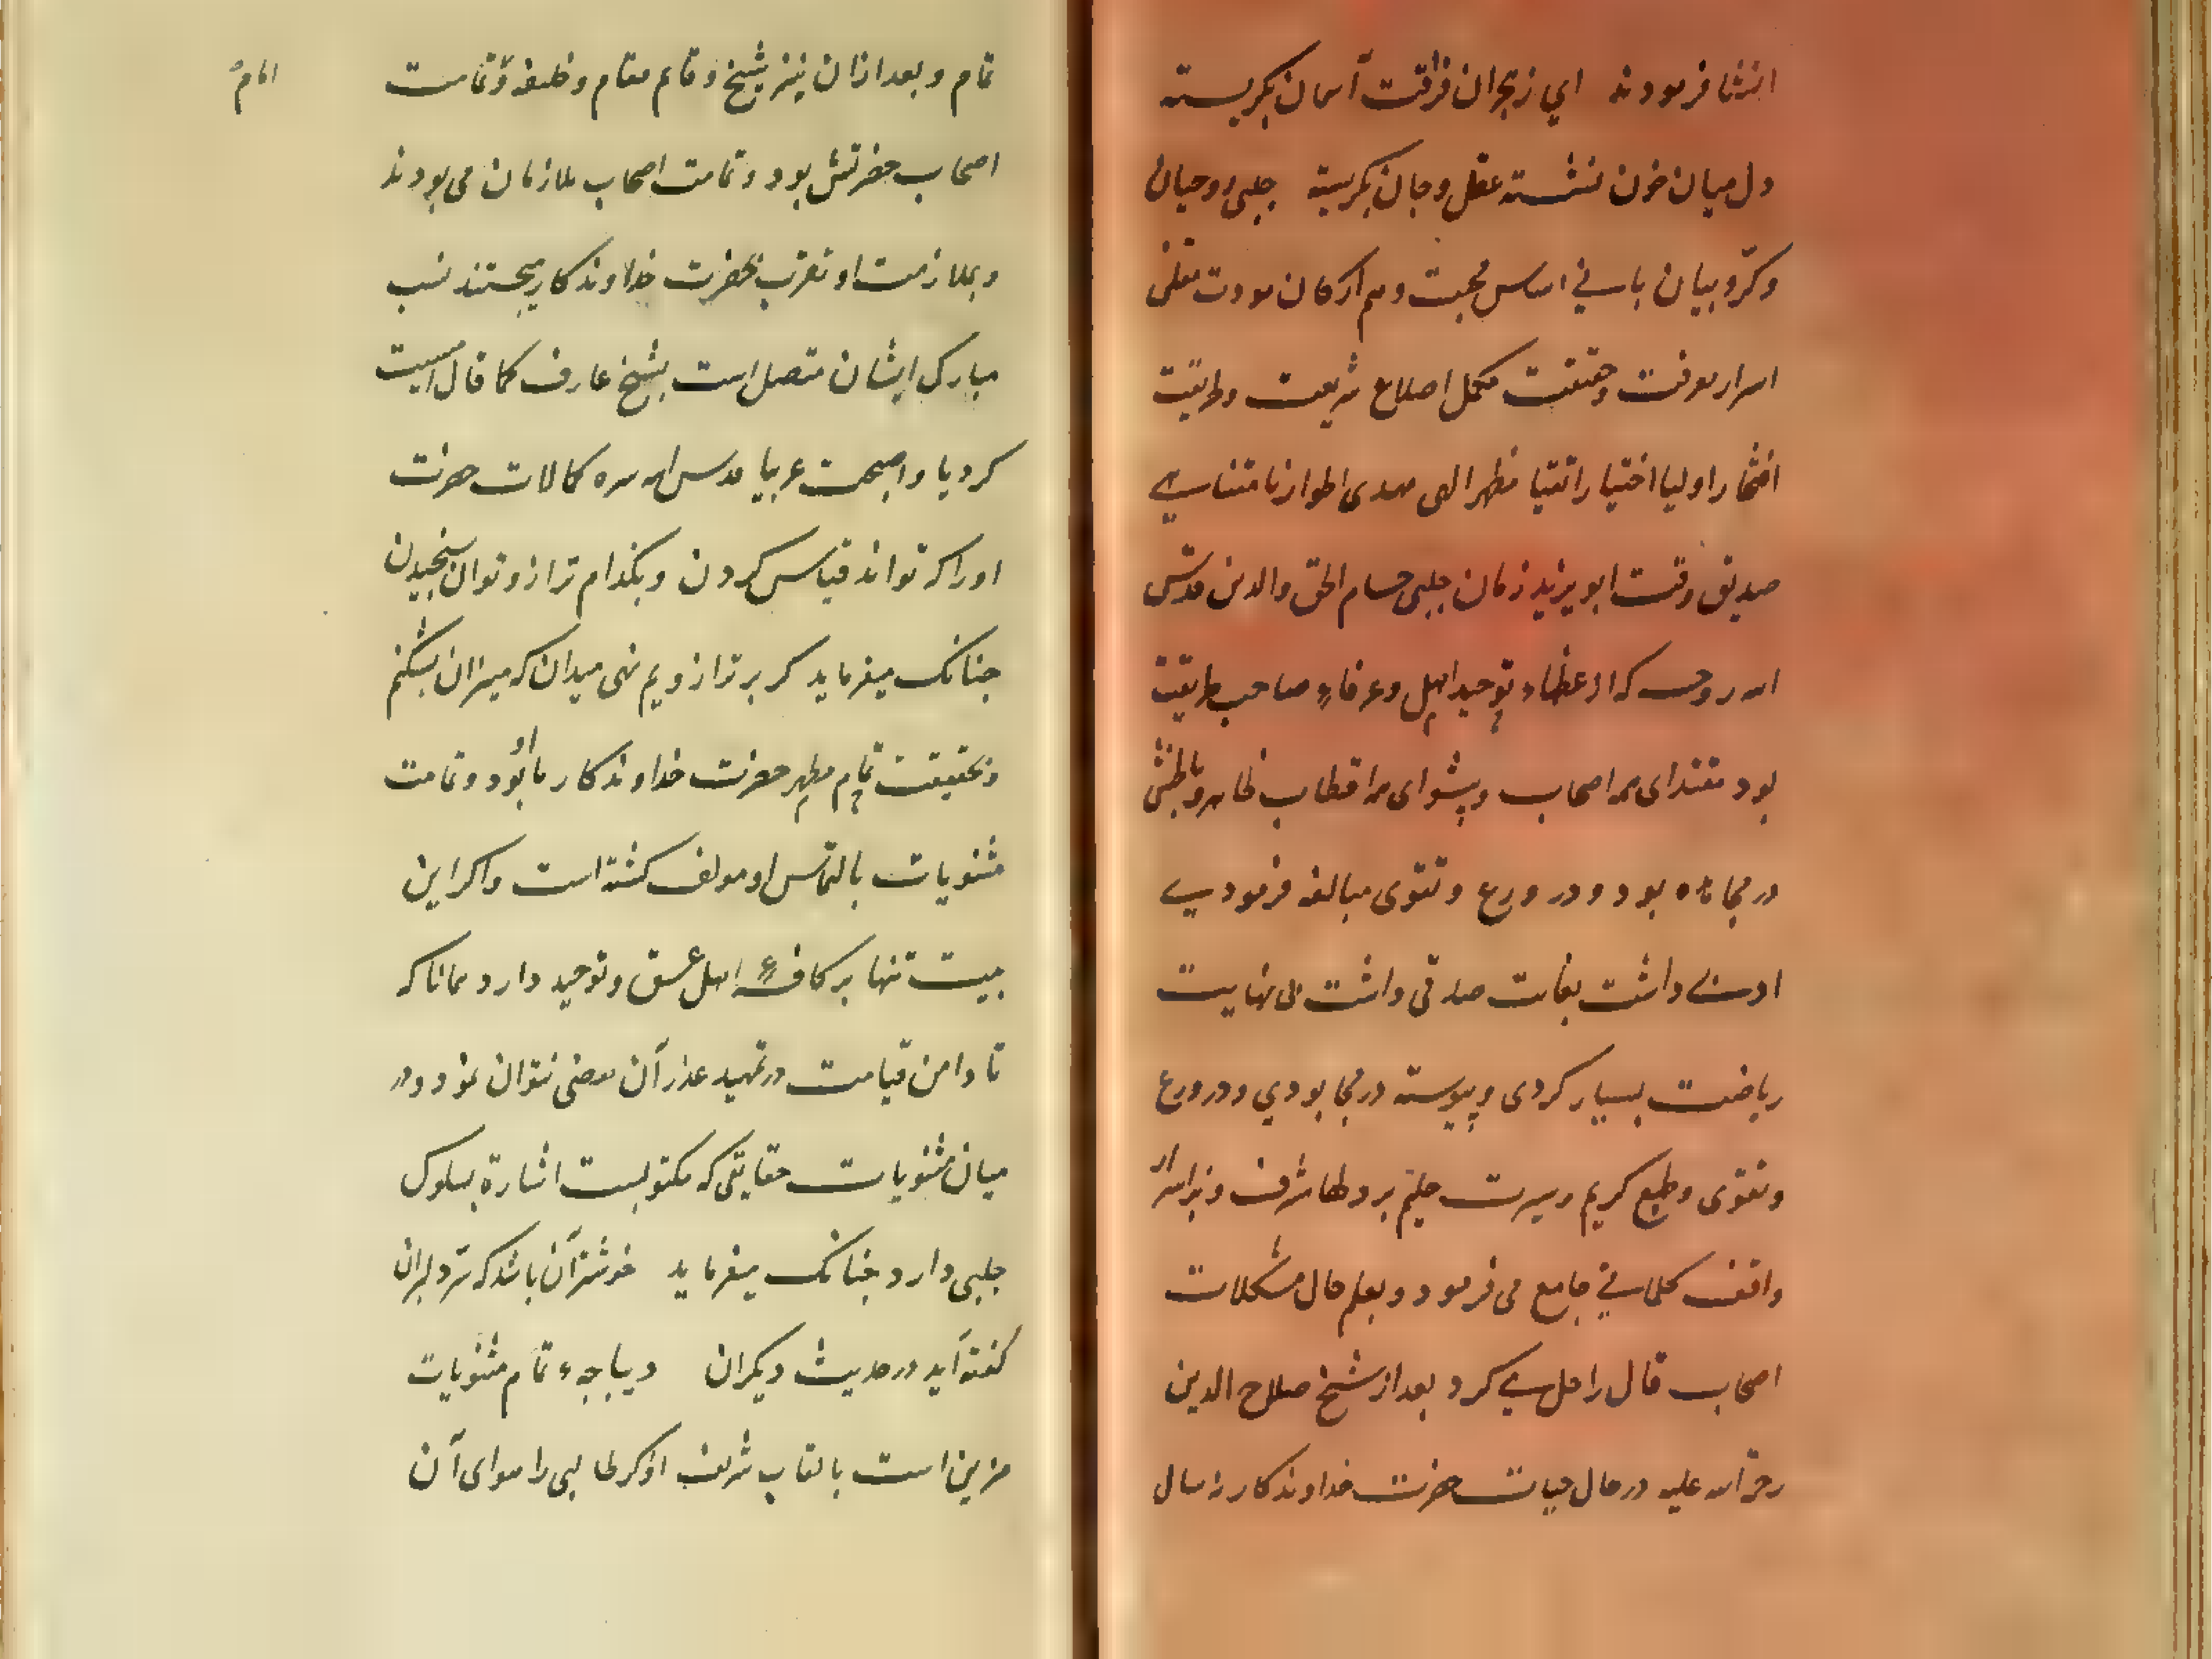 انشا فرمودند ای ز هجران فراقت آسمان بگریسته
دل میان خون نشسته عقل و جان بگریسته چلبی روحیان
و کرّوبیان بانی اساس محبت و هم ارکان مودت متقن
اسرار معرفت و حقیقت مکمل اصلاع شریعت و طریقت
افتخار اولیا اختیار اتقیا مظهر الهی مهدی اطوار نامتناهی
صدیق وقت ابویزید زمان چلبی حسام الحق والدین قدس
الله روحه که از عظماء توحید اهل و عرفاء صاحب طریقت
بود مقتدای همه اصحاب و پیشوای همه اقطاب ظاهر و باطنش
در مجاهده بود و در ورع و تقوی مبالغه فرمودی
ادبی داشت بغایت صدقی داشت بی نهایت
ریاضت بسیار کردی و پیوسته در بودی و در ورع
و تقوی و طبع کریم و سیرت حلیم شرف و بر اسرار
واقف کلماتی جامع می فرمود و بعلم حال مشکلات
اصحاب قال را حل می کرد بعد از شیخ صلاح الدین
رحمة الله علیه در حال حیات حضرت خداوندکار نه سال
تمام و بعد ازان نیز شیخ و قایم مقام و خلیفه و تمامت امام
اصحاب حضرتش بود و تمامت اصحاب ملازمان می بودند
و بملازمت او تقرب بحضرت خداوندکار میجستند نسب
مبارک ایشان متصل است بشیخ عارف کما قال امسیت
کردیا و اصبحت عربیا قدس الله سره کمالات حضرت
اورا که تواند قیاس کردن و بکدام ترازو توان سنجیدن
چنانک میفرماید کر بر ترازویم نهی میدان که میزان بشکنم
و بحقیقت تمام مظهر حضرت خداوندکار ما او بود و تمامت
مثنویات بالتماس او مولف کشته است و اکر این
بیت تنها بر کافهٔ اهل عشق و توحید دارد همانا که
تا دامن قیامت در تمهید عذر آن تفصی نتوان نمود و در
میان مثنویات حقایقی که مکتوبست اشارة بسلوک
چلبی دارد چنانک میفرماید خوشتر آن باشد که سرّ دلبران
کفته آید در حدیث دیکران دیباجهء تمام مثنویات
مزین است بالقاب شریف او کر طالبی را هوای آن